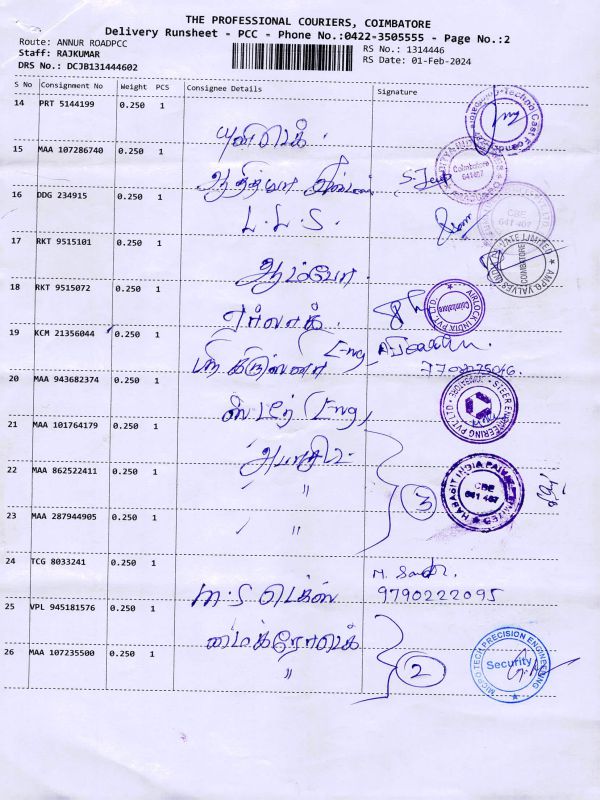 THE PROFESSIONAL COURIERS, COIMBATORE
Delivery Runsheet - PCC - Phone No.:0422-3505555 - Page No.:2
Route: ANNUR ROADPCC
RS No.: 1314446
Staff: RAJKUMAR
RS Date: 01-Feb-2024
DRS No.: DCJB131444602
S No Consignment No Weight PCS Consignee Details Signature
14 PRT 5144199 0.250 1
யுனிடெக்.
15 MAA 107286740 0.250 1
ஆதித்யா
Coimbatore
641407
16 DDG 234915 0.250 1
L.L.S.
CBE
641 407
17 RKT 9515101 0.250 1
ஆம்போ.
AMPO VALVES INDIA PRIVATE LIMITED
COIMBATORE
18 RKT 9515072 0.250 1
ஏர்லாக்.
AIRLOCK INDIA PVT LTD
Coimbatore
19 KCM 21356044 0.250 1
ஸ்ரீ கிருஷ்ணா Eng
20 MAA 943682374 0.250 1
ஸ்டீர் Eng,
STEER ENGINEERING PVT LTD
21 MAA 101764179 0.250 1
22 MAA 862522411 0.250 1
"
3
HABASIT INDIA PRIVATE LIMITED
CBE
641 407
23 MAA 287944905 0.250 1
"
24 TCG 8033241 0.250 1
M.S டெக்ஸ்
9790222095
25 VPL 945181576 0.250 1
மைக்ரோடெக்
26 MAA 107235500 0.250 1
"
2
MICRO TECH PRECISION ENGINEERING
Security